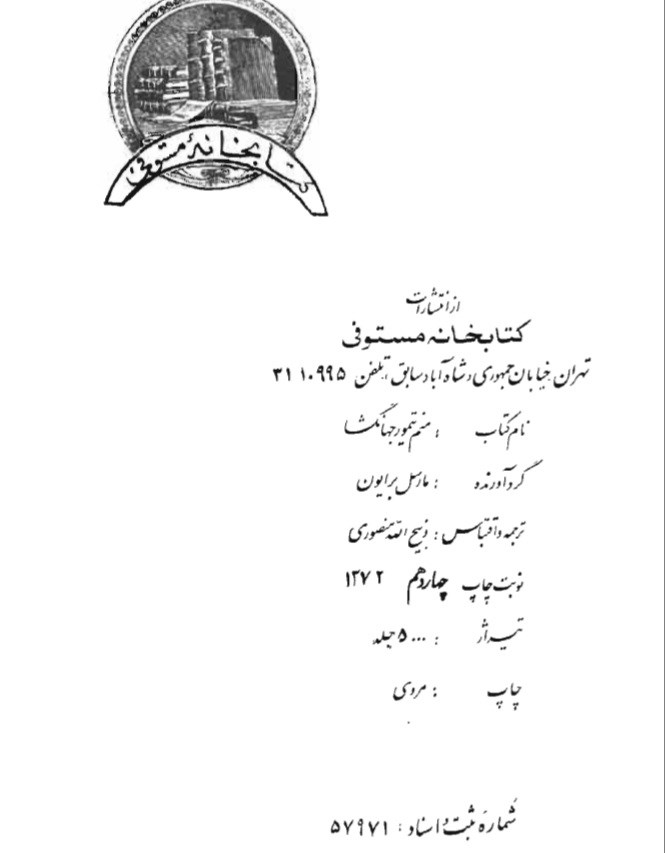 کتابخانهٔ مستوفی
از انتشارات
کتابخانه مستوفی
تهران خیابان جمهوری، شاه آباد سابق، تلفن ۳۱۱۰۹۹۵
نام کتاب : منم تیمور جهانگشا
گردآورنده : مارسل برایون
ترجمه و اقتباس : ذبیح الله منصوری
نوبت چاپ چهاردهم ۱۳۷۲
تیراژ : ۵۰۰۰ جلد
چاپ : مروی
شمارهٔ ثبت و اسناد : ۵۷۹۷۱